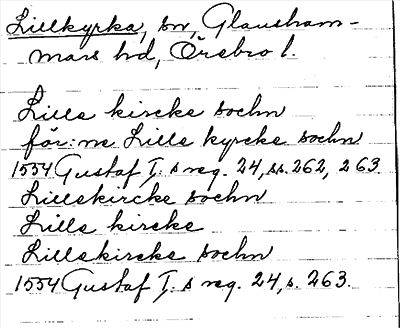 Lillkyrka, sn, Glansham-
mars hd, Örebro l.
Lille kircke sochn
för:ne Lille kyrcke sochn
1554 Gustaf I:s reg. 24, ss. 262, 263.
Lillekircke sochn
Lille kircke
Lillekircke sochn
1554 Gustaf I:s reg. 24, s. 263.